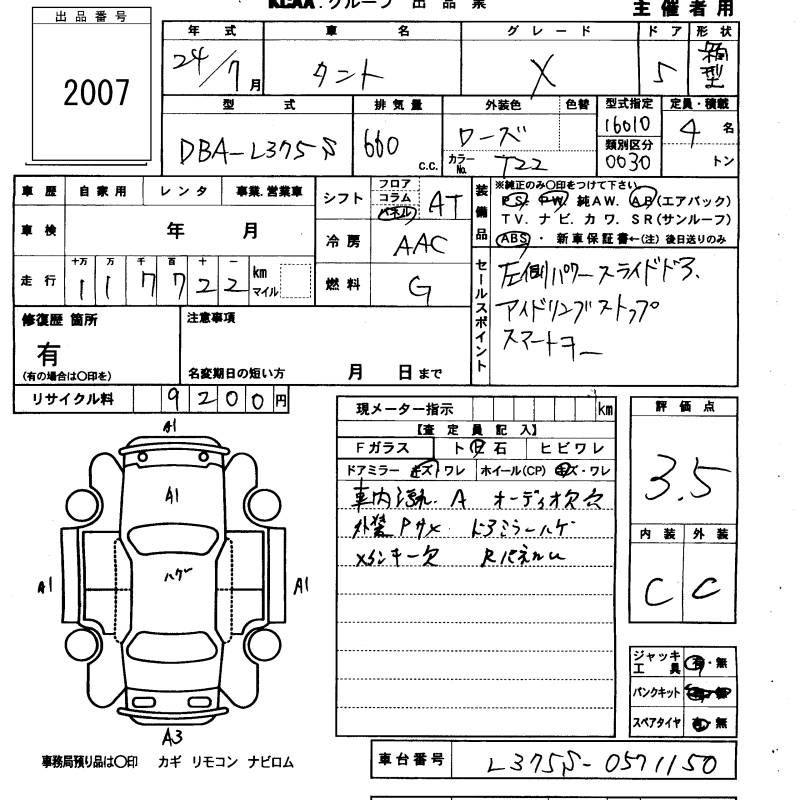 KCAA.グループ 出品票
主催者用
出品番号
2007
年式 車名 グレード ドア 形状
24/7月 タント X 5 箱型
型式 排気量 外装色 色替 型式指定 定員・積載
DBA-L375S 660 c.c. ローズ 16010 4名
カラーNo. T22 類別区分 0030 トン
車歴 自家用 レンタ 事業.営業車
シフト フロア コラム パネル AT
車検 年 月
冷房 AAC
走行 十万 万 千 百 十 一
117722 km マイル
燃料 G
装備品
※純正のみ〇印をつけて下さい
PS. PW. 純AW. AB(エアバック)
TV. ナビ. カワ. SR(サンルーフ)
ABS ・ 新車保証書←(注)後日送りのみ
セールスポイント
左側パワースライドドア.
アイドリングストップ
スマートキー
修復歴 箇所
有
(有の場合は〇印を)
注意事項
名変期日の短い方 月 日まで
リサイクル料 9200円
現メーター指示 km
【査定員記入】
Fガラス ト 石 ヒビワレ
ドアミラー キズ ワレ ホイール(CP) キズ・ワレ
車内汚れ. A オーディオ欠穴
外装 Pダメ. ドアミラーハゲ
メインキー欠
評価点
3.5
内装 外装
C C
A1
A1
A1
ハゲ
A1
A3
ジャッキ 工具 有・無
パンクキット
スペアタイヤ 有・無
事務局預り品は〇印 カギ リモコン ナビロム
車台番号 L375S-0571150